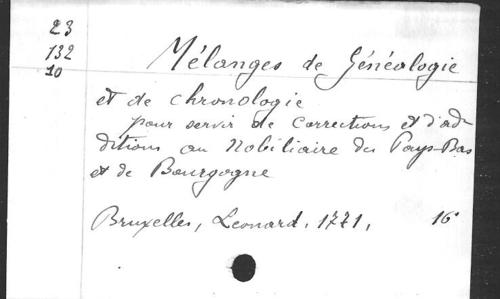 23
132
10
Mélanges de Généalogie
et de chronologie
pour servir de corrections et d'ad-
ditions au Nobiliaire des Pays-Bas
et de Bourgogne
Bruxelles, Leonard, 1771, 16°